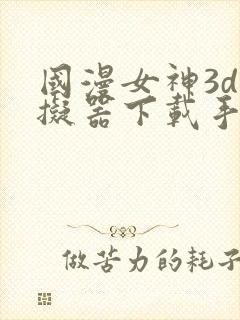 國漫女神3d
擬器下載手
做苦力的耗子